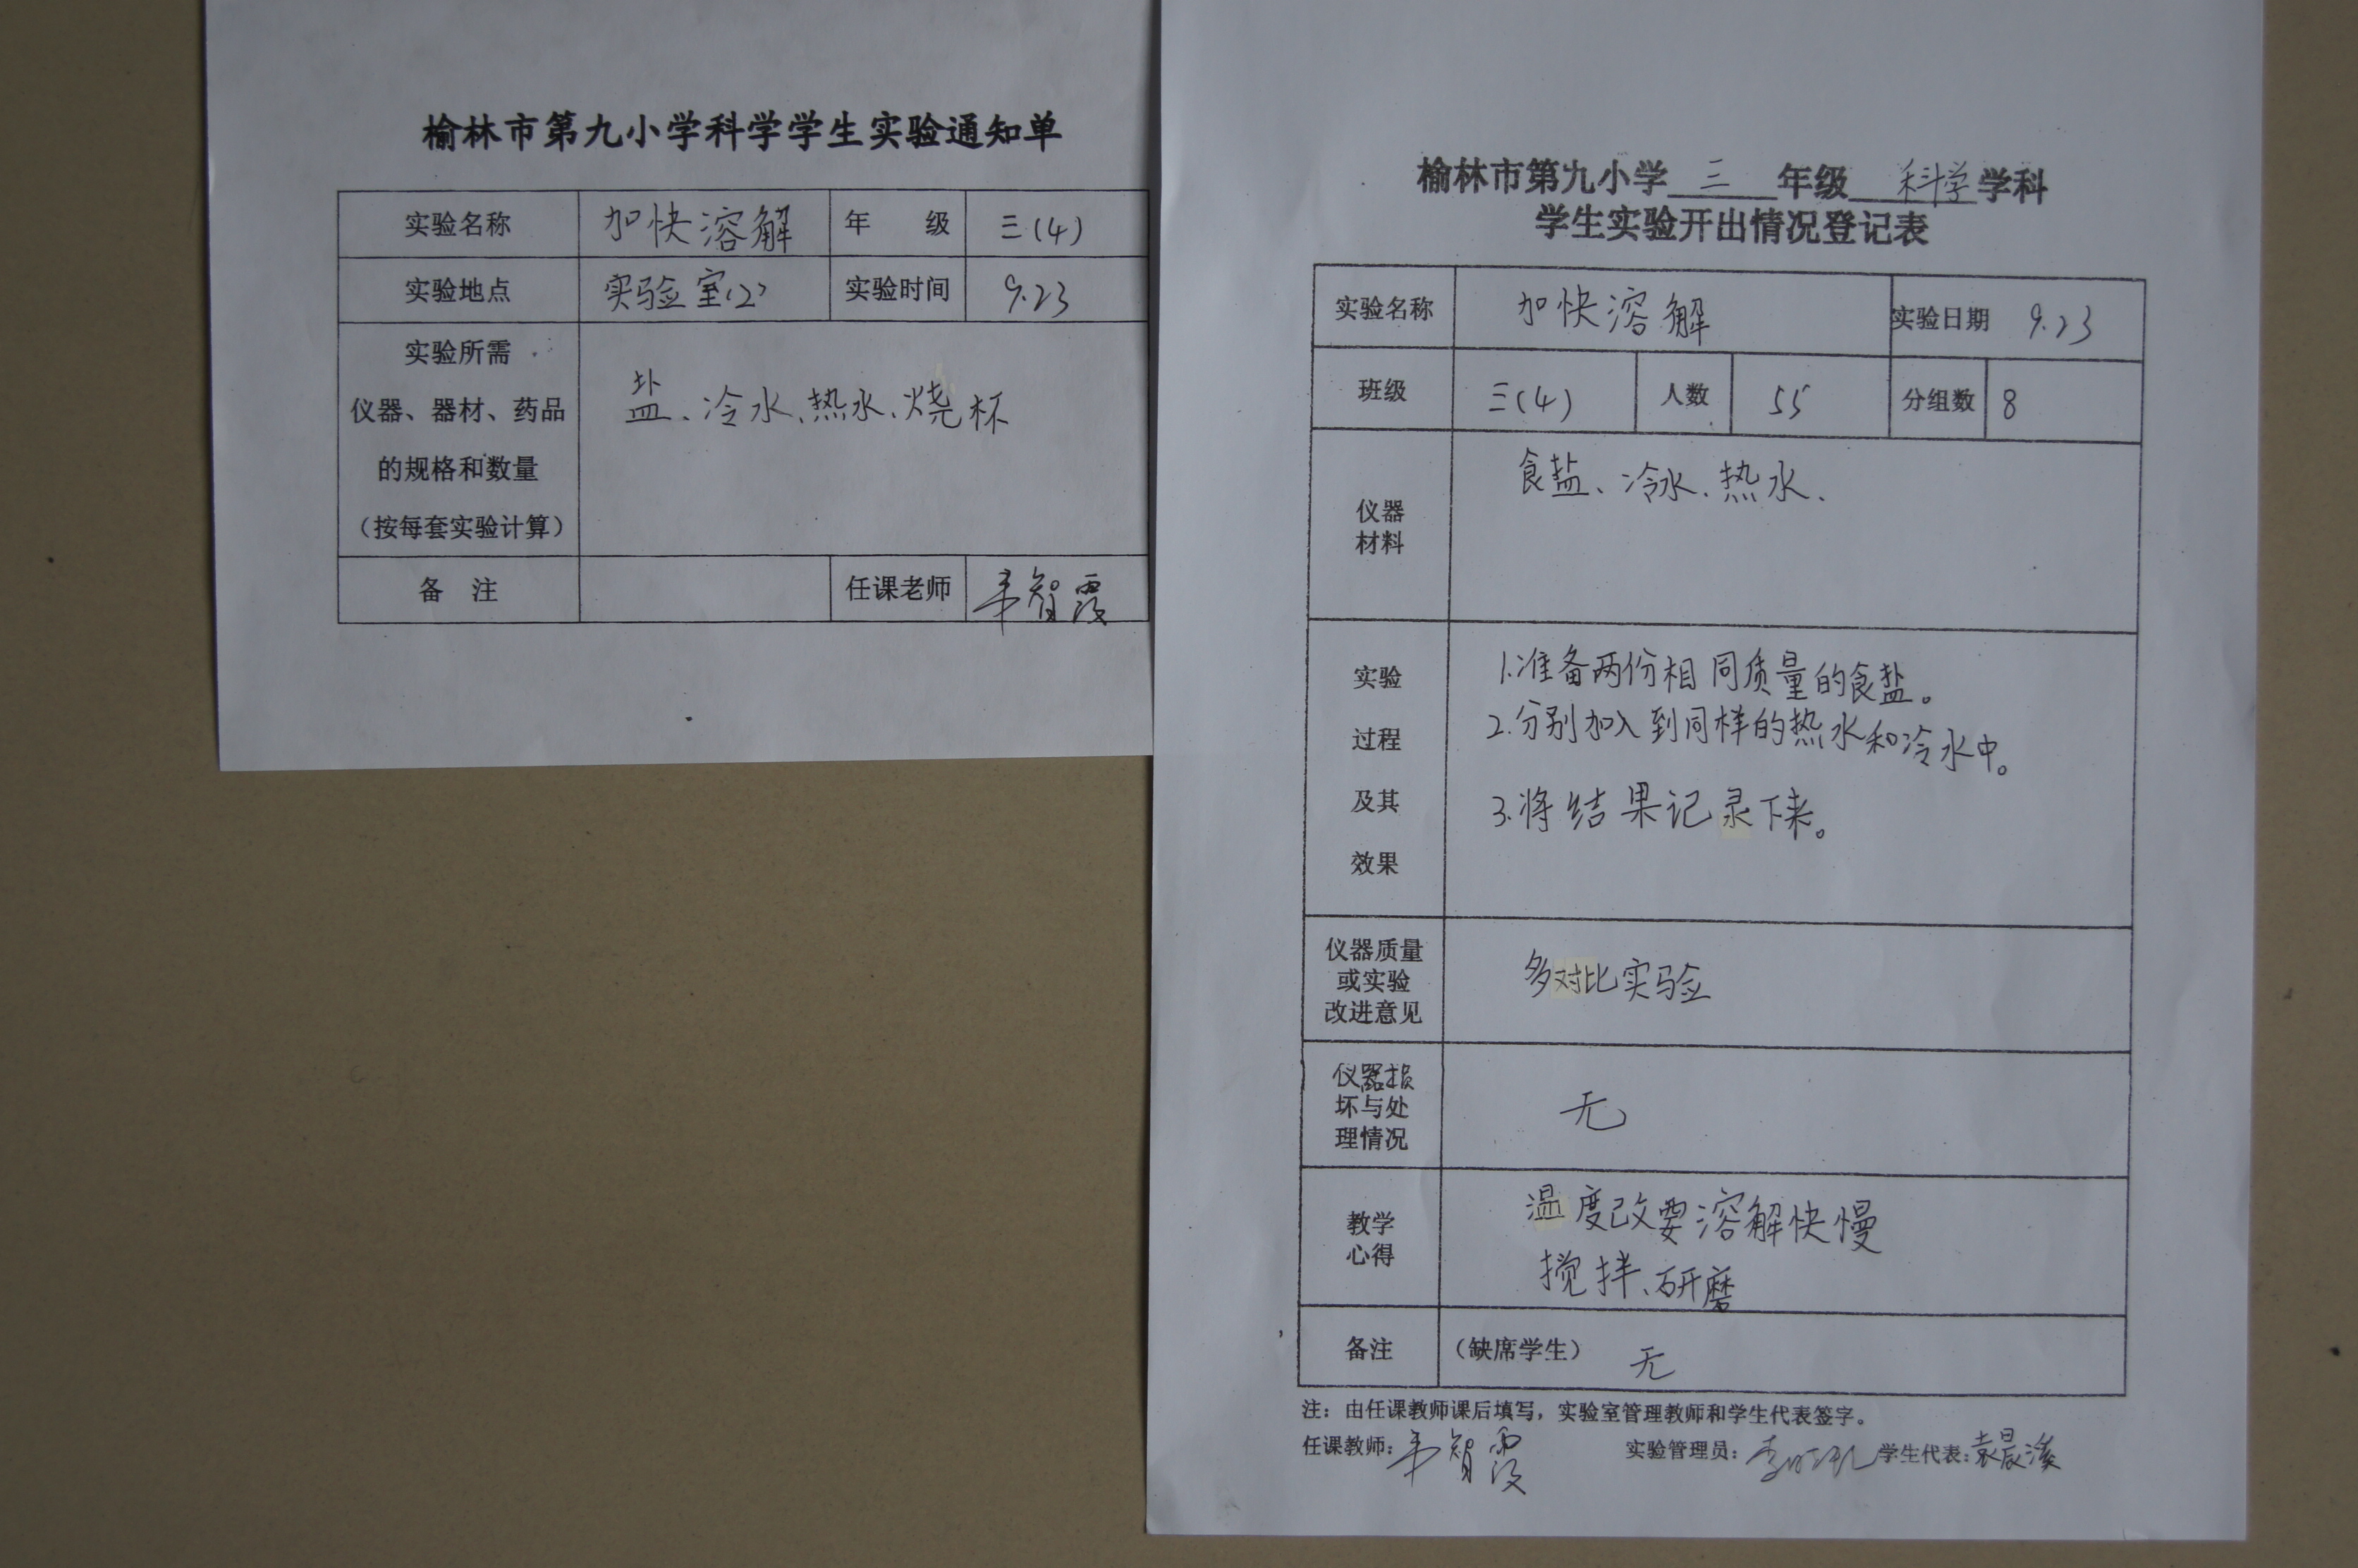 榆林市第九小学科学学生实验通知单
实验名称 加快溶解 年 级 三(4)
实验地点 实验室(2) 实验时间 9.23
实验所需
仪器、器材、药品
的规格和数量
(按每套实验计算)
盐、冷水、热水、烧杯
备 注 任课老师 智霞
榆林市第九小学 三 年级 科学 学科
学生实验开出情况登记表
实验名称 加快溶解 实验日期 9.23
班级 三(4) 人数 55 分组数 8
仪器
材料
食盐、冷水、热水、
实验
过程
及其
效果
1.准备两份相同质量的食盐。
2.分别加入到同样的热水和冷水中。
3.将结果记录下来。
仪器质量
或实验
改进意见
多对比实验
仪器损
坏与处
理情况
无
教学
心得
温度改要溶解快慢
搅拌、研磨
备注 (缺席学生) 无
注：由任课教师课后填写，实验室管理教师和学生代表签字。
任课教师: 智霞 实验管理员: 学生代表: 袁晨溪